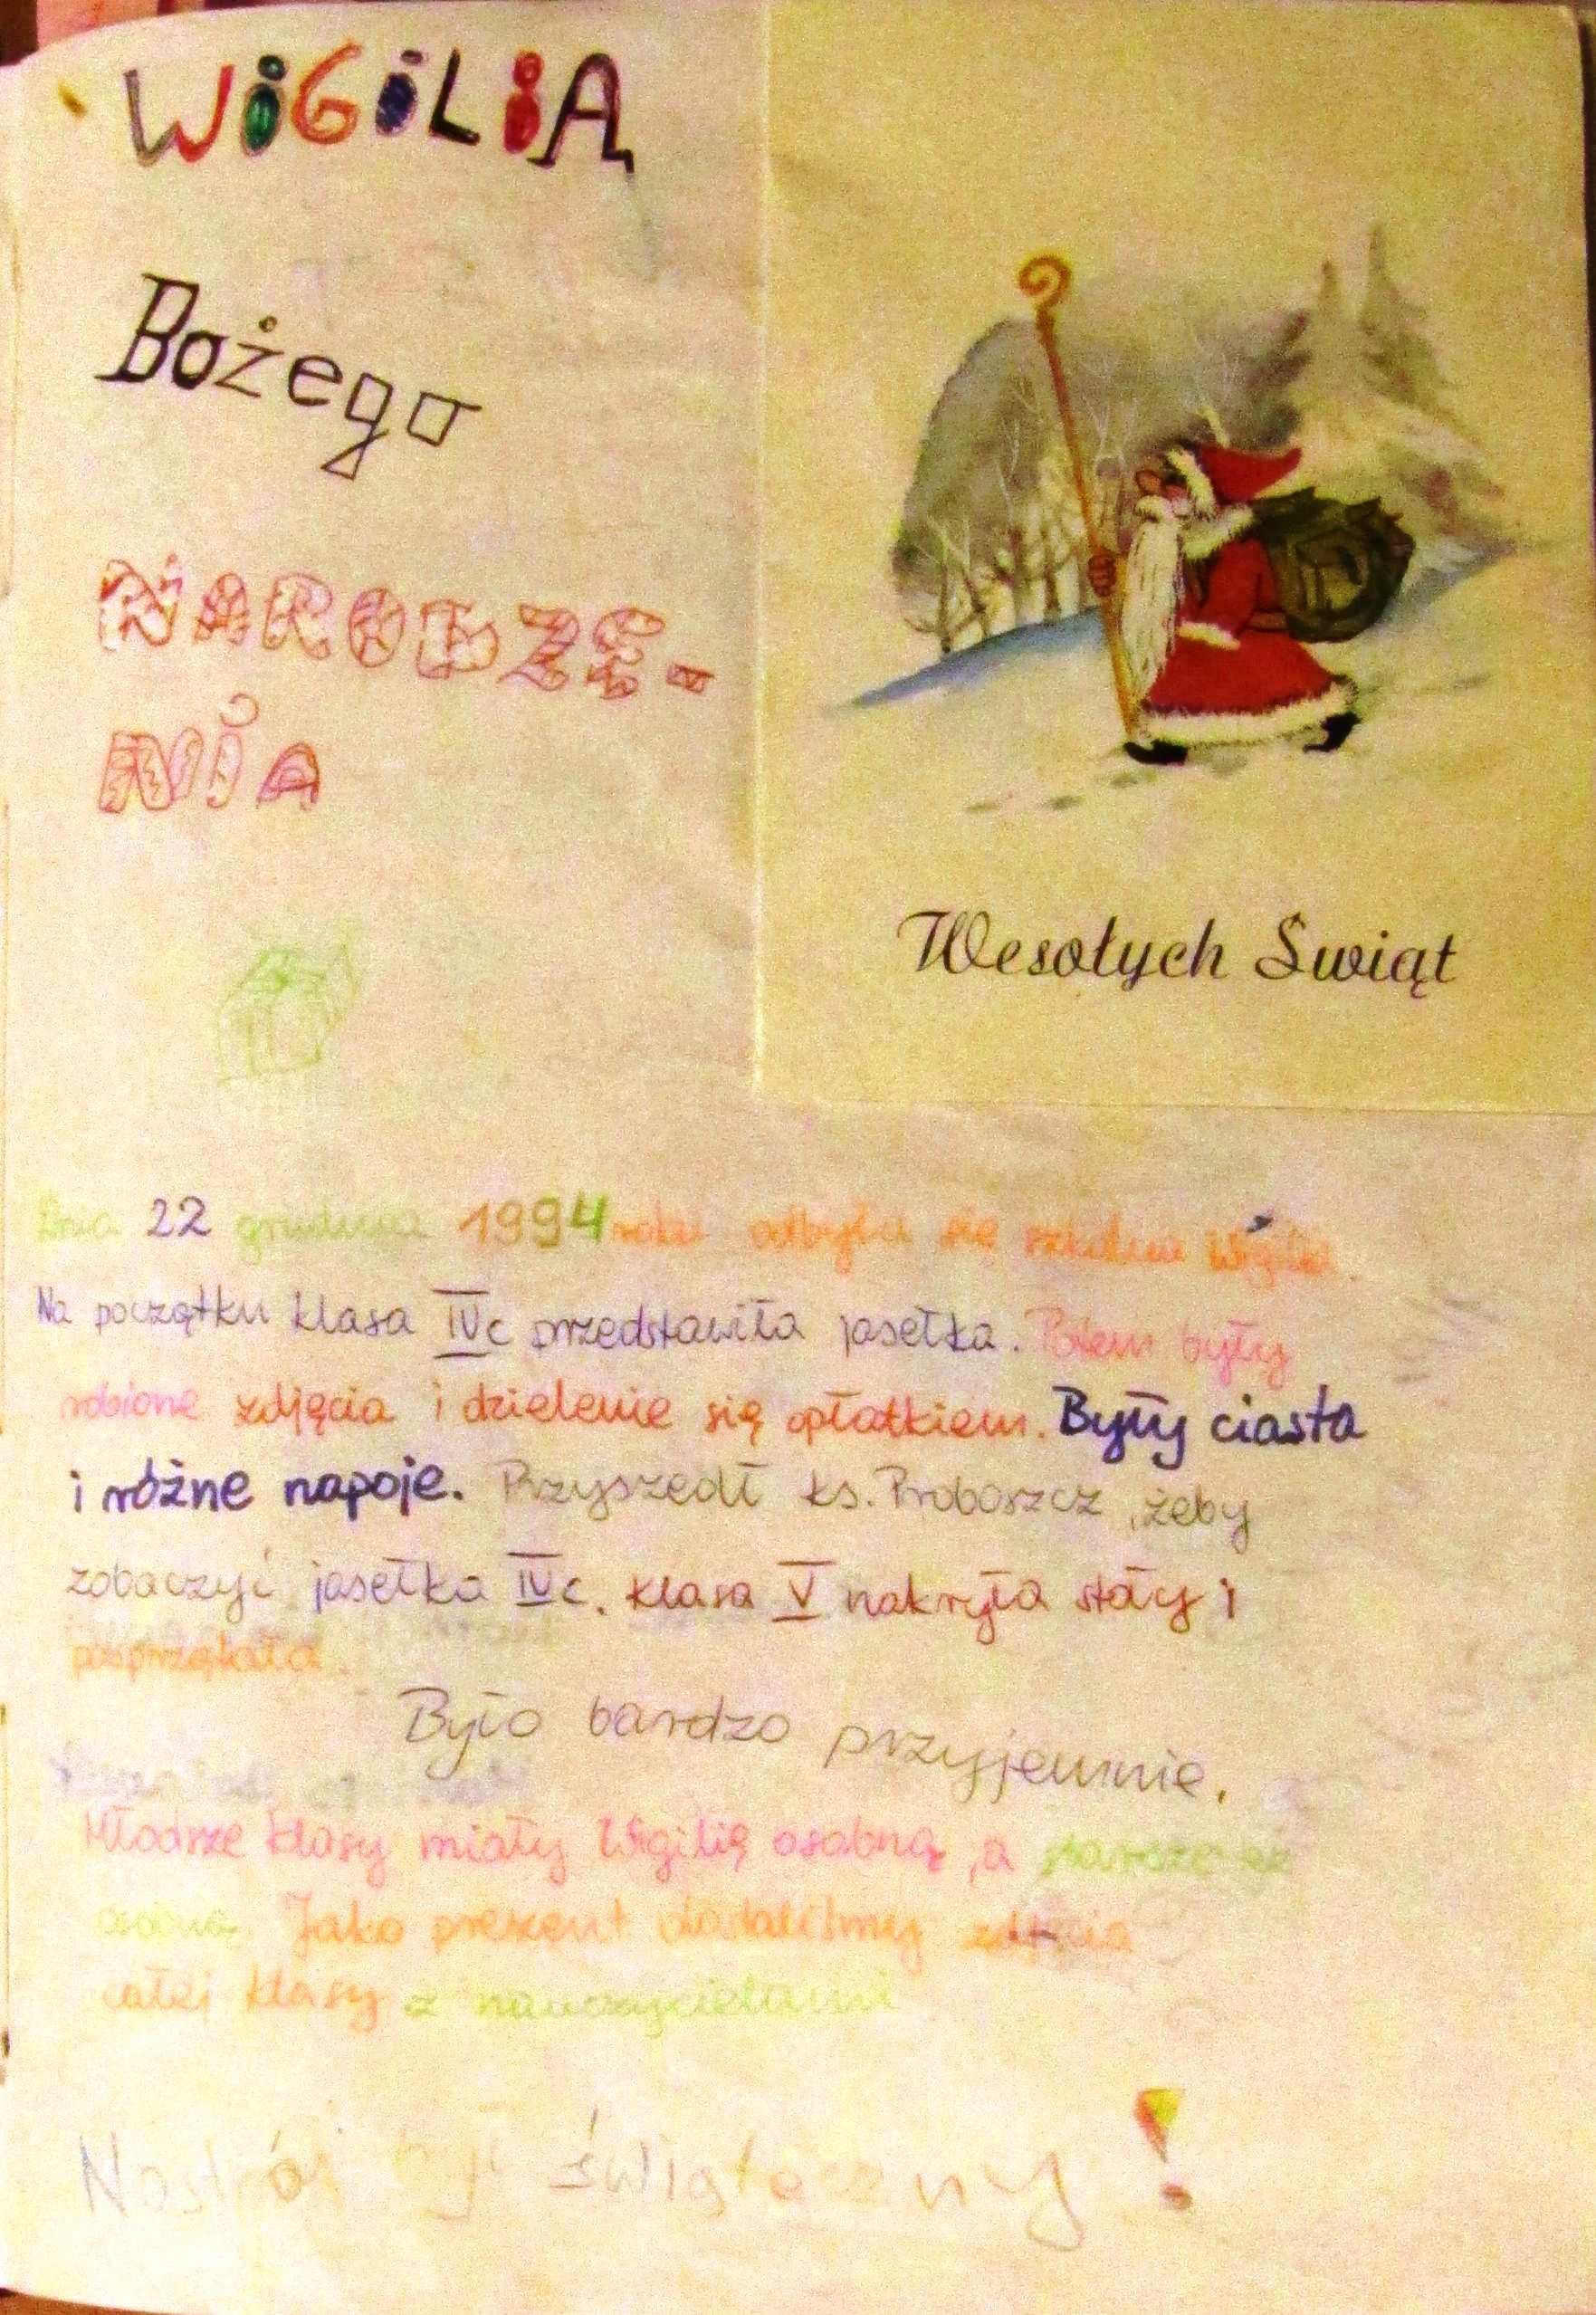 WiGiLiA
Bożego
NARODZE-
NiA
Wesołych Świąt
Dnia 22 grudnia 1994 roku odbyła się szkolna Wigilia.
Na początku klasa IVc przedstawiła jasełka. Potem były
robione zdjęcia i dzielenie się opłatkiem. Były ciasta
i różne napoje. Przyszedł ks. Proboszcz, żeby
zobaczyć jasełka IVc. Klasa V nakryła stoły i
posprzątała.
Było bardzo przyjemnie.
Młodsze klasy miały Wigilię osobną, a starsze
osobną. Jako prezent dostaliśmy zdjęcia
całej klasy z nauczycielami
Nastrój był świąteczny!